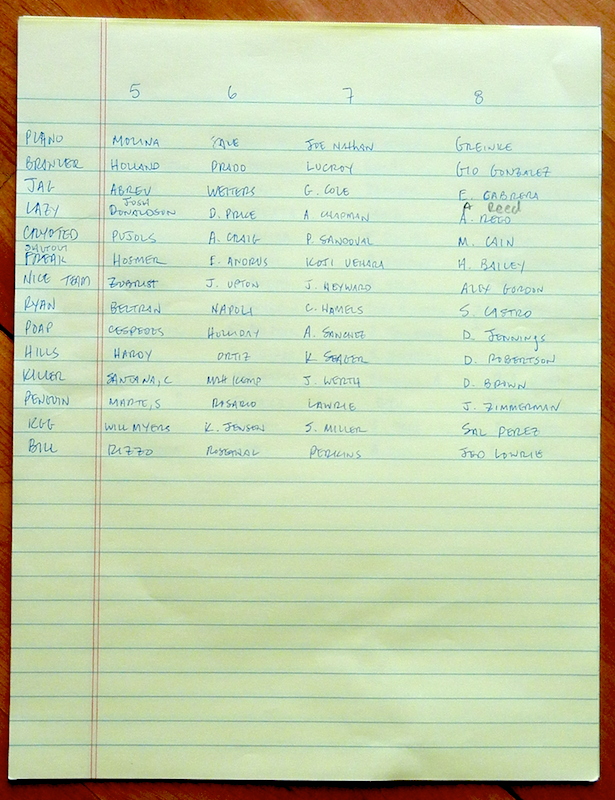 5 6 7 8
PLANO MOLINA SALE JOE NATHAN GREINKE
BRAWLER HOLLAND PRADO LUCROY GIO GONZALEZ
JAG ABREU WEITERS G. COLE E. CABRERA
LAZY JOSH DONALDSON D. PRICE A. CHAPMAN A. REED A Reed
COYOTED PUJOLS A. CRAIG P. SANDOVAL M. CAIN
SHUTOUT FREAK HOSMER E. ANDRUS KOJI UEHARA H. BAILEY
NICE TEAM ZOBRIST J. UPTON J. HEYWARD ALEX GORDON
RYAN BELTRAN NAPOLI C. HAMELS S. CASTRO
POAP CESPEDES HOLLIDAY A. SANCHEZ D. JENNINGS
HILLS HARDY ORTIZ K. SEAGER D. ROBERTSON
KILLER SANTANA, C MATT KEMP J. WERTH D. BROWN
PENGUIN MARTE, S ROSARIO LAWRIE J. ZIMMERMAN
KGG WILL MYERS K. JENSEN S. MILLER SAL PEREZ
BILL RIZZO ROSENTHAL PERKINS JED LOWRIE